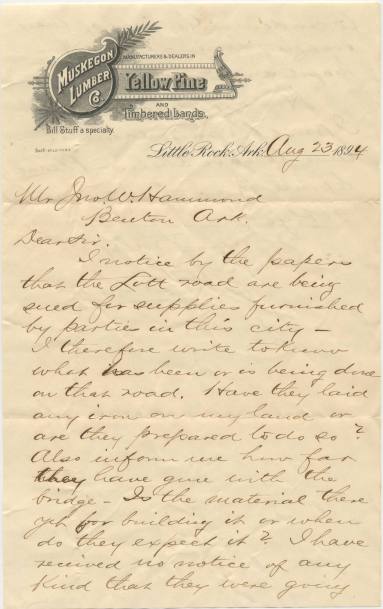 MUSKEGON
LUMBER
Co.
MANUFACTURERS & DEALERS IN
Yellow Pine
AND
Timbered Lands.
Bill Stuff a specialty.
Little Rock, Ark. Aug 23 1894
Mr Jno. W. Hammond
Benton Ark.
Dear Sir.
I notice by the papers
that the Lott road are being
sued for supplies furnished
by parties in this city –
I therefore write to know
what has been or is being done
on that road. Have they laid
any iron on my land or
are they prepared to do so?
Also inform me how far
they have gone with the
bridge – Is the material there
yet for building it or when
do they expect it? I have
received no notice of any
kind that they were going